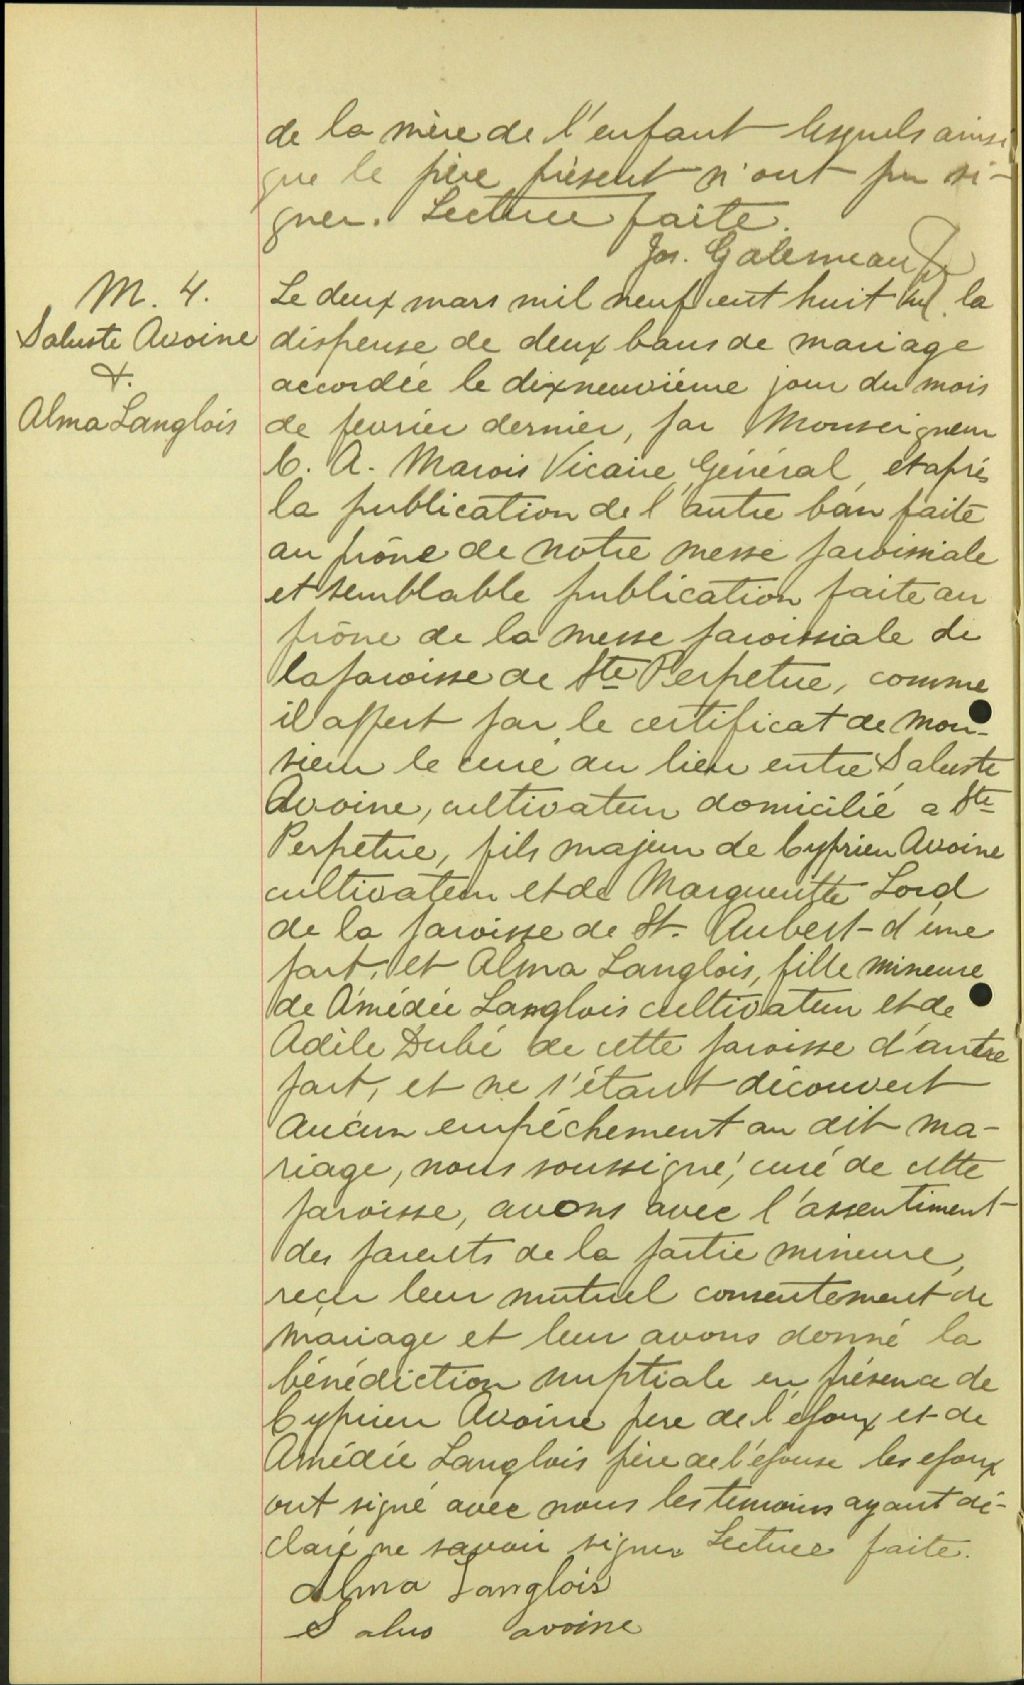 de la mère de l'enfant lesquels ainsi
que le père présent n'ont pu si-
gner. Lecture faite.
Jos. Galerneau Ptr
M. 4.
Saluste Avoine
&.
Alma Langlois
Le deux mars mil neuf cent huit vu la
dispense de deux bans de mariage
accordée le dixneuvième jour du mois
de fevrier dernier, par Monseigneur
C. A. Marois Vicaire Général, et après
la publication de l'autre ban faite
au prône de notre messe paroissiale
et semblable publication faite au
prône de la messe paroissiale de
la paroisse de Ste Perpetue, comme
il appert par le certificat de mon-
sieur le curé du lieu entre Saluste
Avoine, cultivateur domicilié a Ste
Perpetue, fils majeur de Cyprien Avoine
cultivateur et de Margueritte Lord
de la paroisse de St. Aubert d'une
part, et Alma Langlois, fille mineure
de Amédée Langlois cultivateur et de
Adèle Dubé de cette paroisse d'autre
part, et ne s'étant découvert
aucun empêchement au dit ma-
riage, nous soussigné, curé de cette
paroisse, avons avec l'assentiment
des parents de la partie mineure,
reçu leur mutuel consentement de
mariage et leur avons donné la
bénédiction nuptiale en présence de
Cyprien Avoine pere de l'epoux et de
Amédée Langlois père de l'épouse les epoux
ont signé avec nous les temoins ayant dé-
claré ne savoir signer Lecture faite.
Alma Langlois
Salus avoine